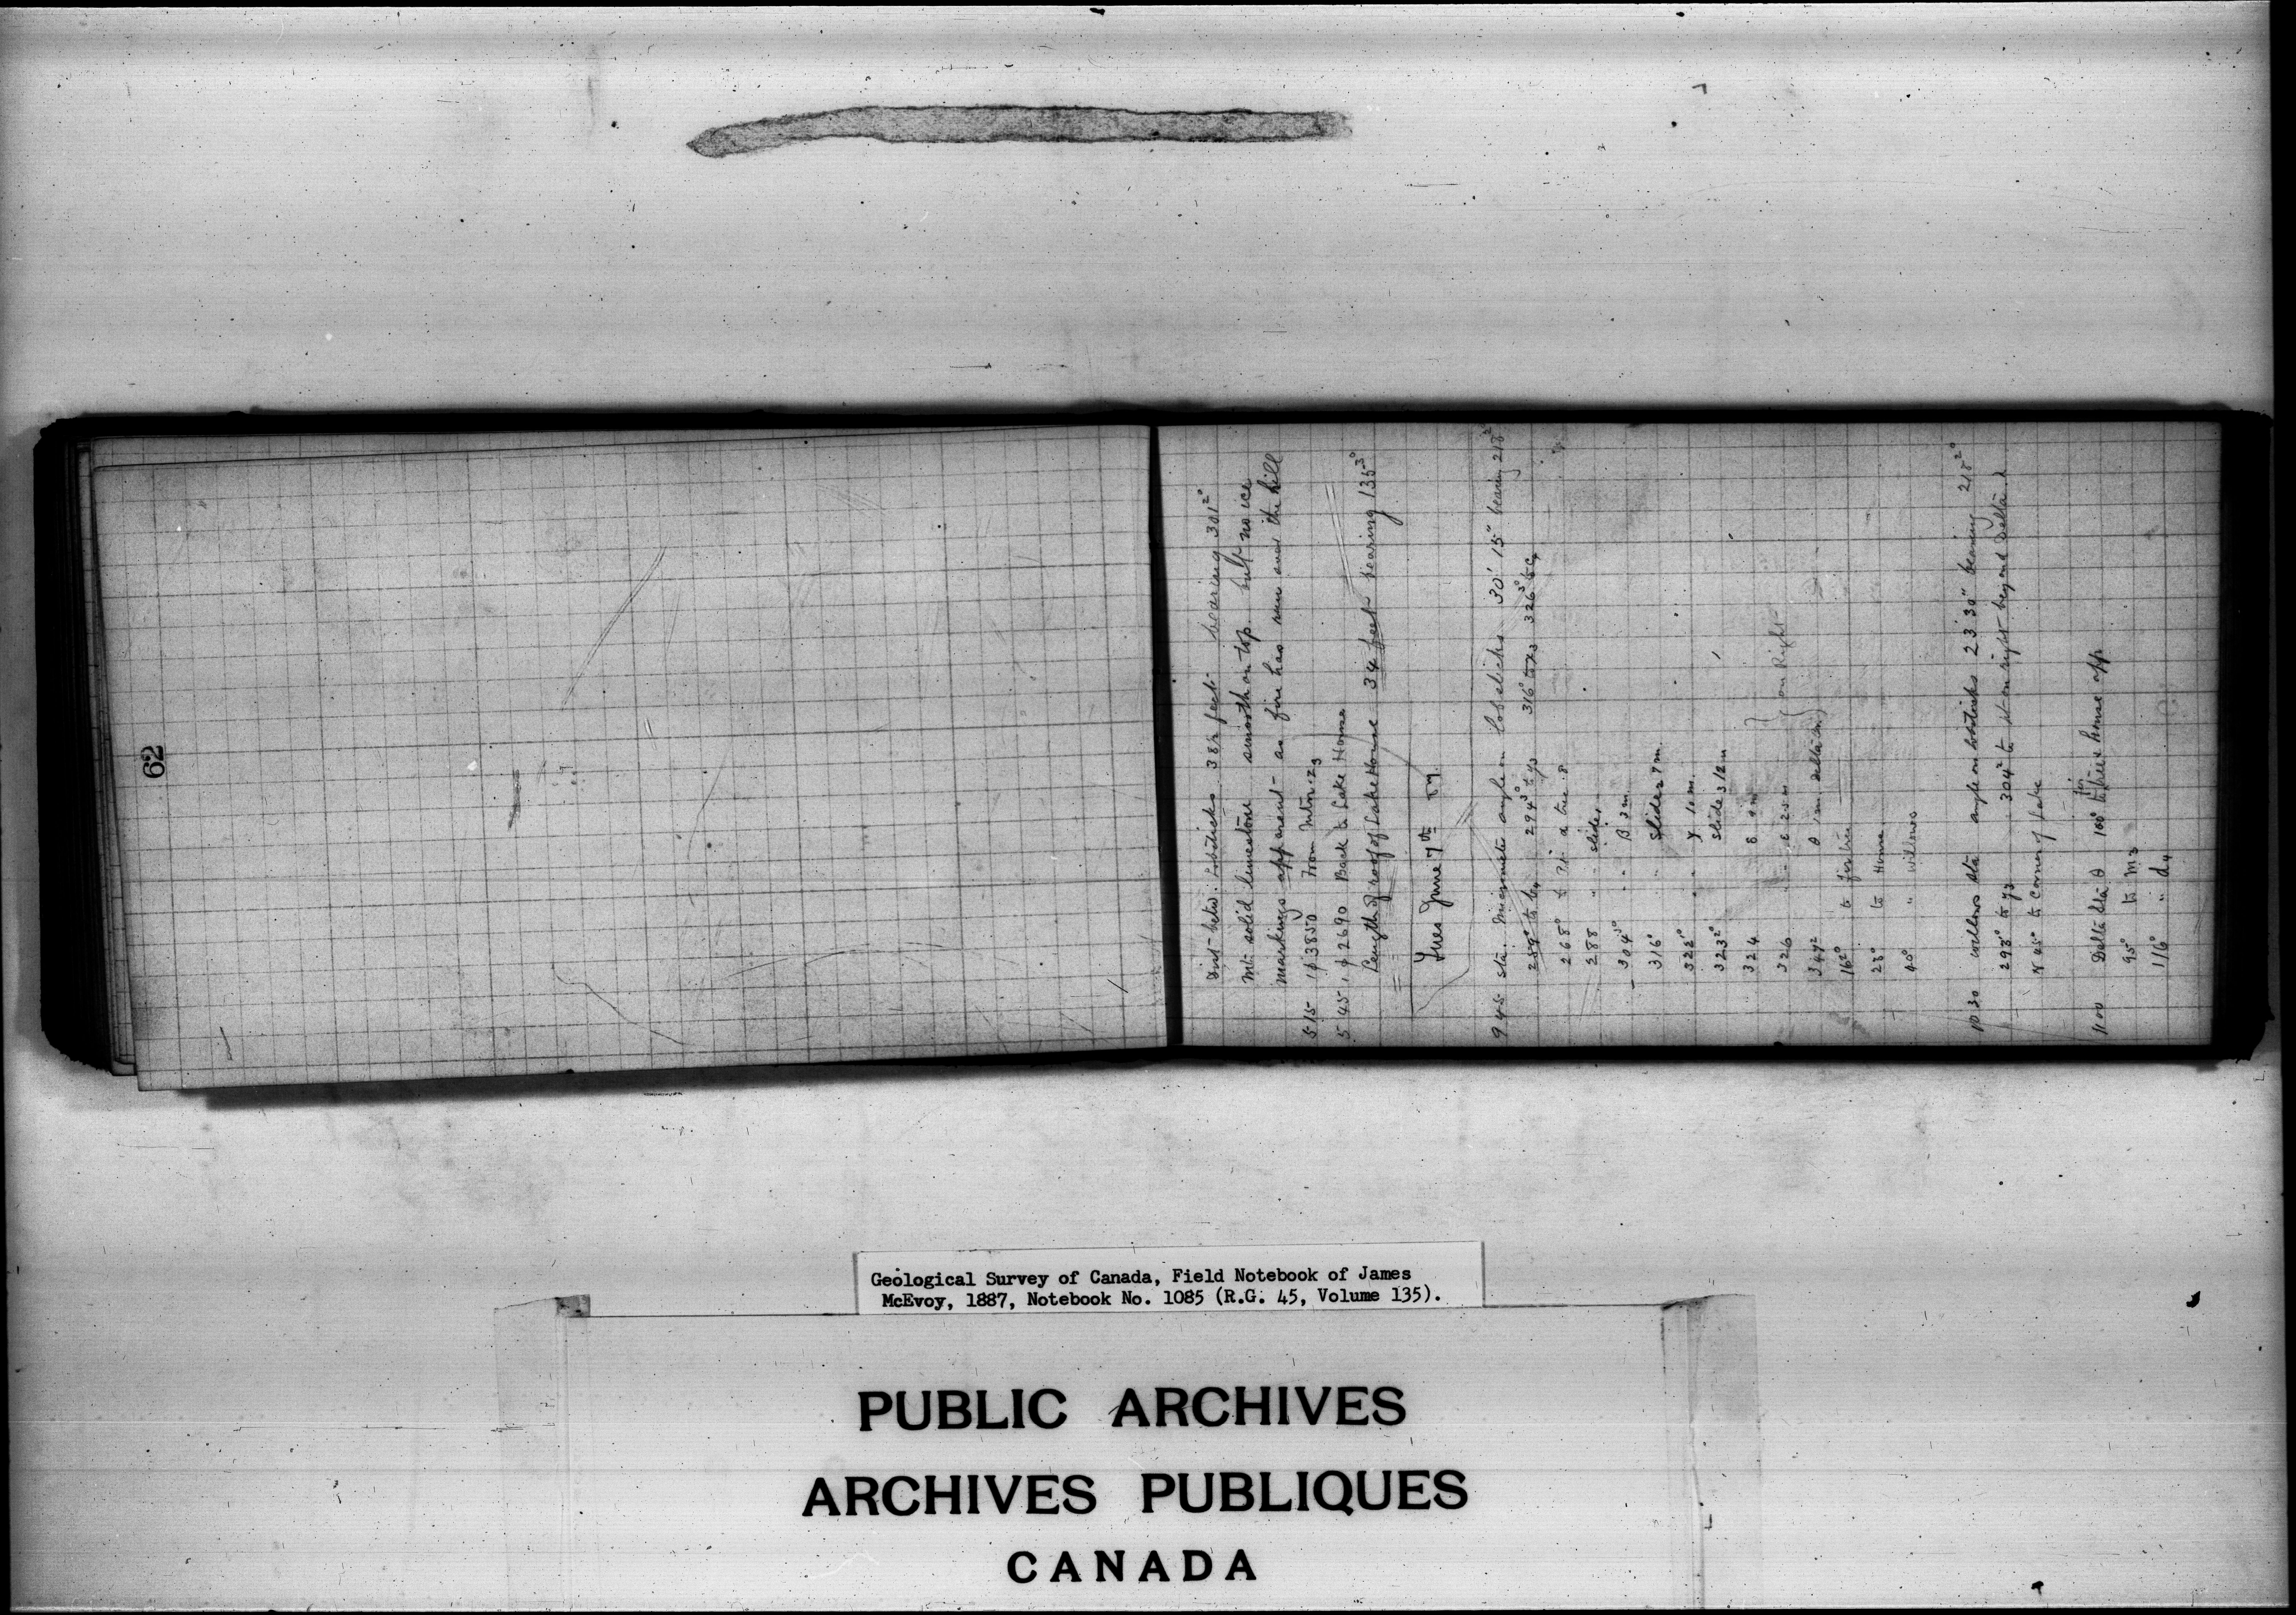 62
Dist betw. Lobsticks 382 feet bearing 301²°
Mt. solid limestone smooth on top but no ice
markings apparent as fire has run over the hill
5 15 From Mtn
5 45 2690 Back to Lake House
Length of roof of Lake House 34 feet bearing 135³°
Tues June 7th 87
9 45 Sta. Micrometer angle on lobsticks 30' 15" bearing 218²°
294³° to y3 316° to x3 326³°
268° to
288 " " slide,
304³° " " β 3m
316° " " slide 2 7m
322¹° " " γ 10m
323²° slide 3 12m
324 δ
326 ε 25m
347² θ 1m
on Right
16²° to fir tree
28° to House
40° " willows
10 30 willows sta angle on lobsticks 23' 30" bearing 218²°
298° to y3 304² to pt on right beyond Delta
N 45° to Corner of Lake
11 00 Delta sta θ 100° to fir tree & house opp
95° to M3
116° " d4
Geological Survey of Canada, Field Notebook of James
McEvoy, 1887, Notebook No. 1085 (R.G. 45, Volume 135).
PUBLIC ARCHIVES
ARCHIVES PUBLIQUES
CANADA